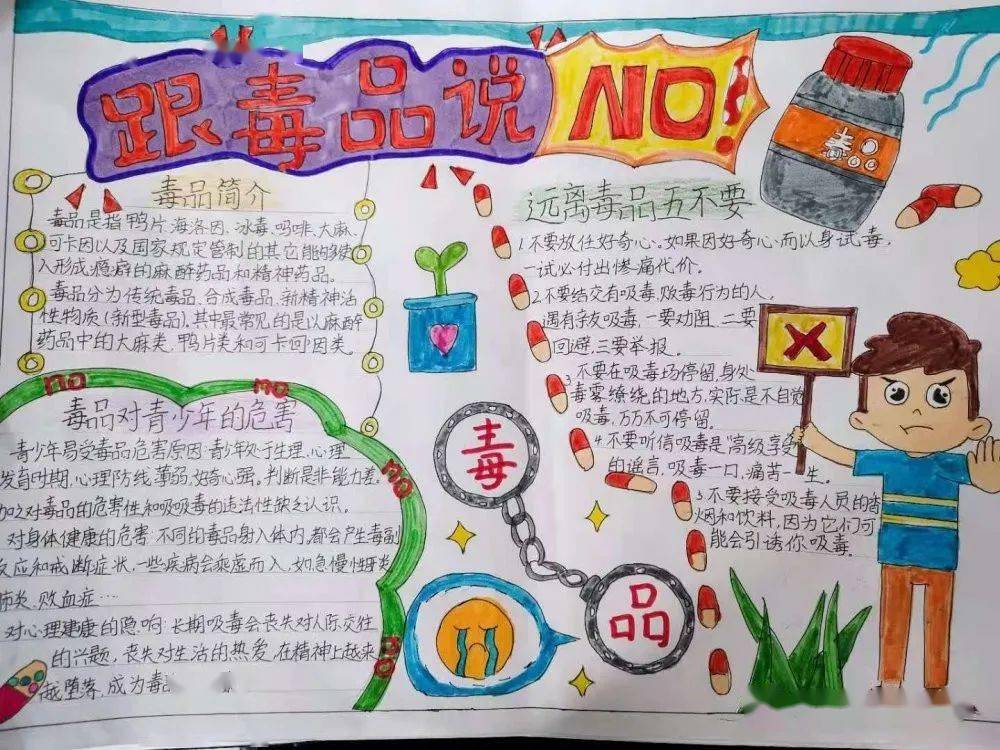 跟毒品说NO!
毒品
毒品简介
毒品是指鸭片、海洛因、冰毒、吗啡、大麻、
可卡因以及国家规定管制的其它能够使
人形成瘾癖的麻醉药品和精神药品。
毒品分为传统毒品、合成毒品、新精神活
性物质(新型毒品)。其中最常见的是以麻醉
药品中的大麻类,鸭片类和可卡因类。
no
no
no
no
no
毒品对青少年的危害
青少年易受毒品危害原因:青少年处于生理、心理
发育时期,心理防线薄弱,好奇心强。判断是非能力差。
加之对毒品的危害性和吸毒的违法性缺乏认识。
对身体健康的危害:不同的毒品身入体内,都会产生毒副
反应和戒断症状,一些疾病会乘虚而入,如急慢性肝类
肺类、败血症…
对心理健康的隐响:长期吸毒会丧失对人际交往
的兴题,丧失对生活的热爱,在精神上越来
越堕落,成为毒
毒
品
远离毒品五不要
1.不要放任好奇心。如果因好奇心,而以身试毒,
一试必付出惨痛代价。
2.不要结交有吸毒、败毒行为的人。
遇有亲友吸毒,一要劝阻,二要
回避,三要举报。
3.不要在吸毒场停留,身处
毒雾缭绕的地方,实际是不自觉
吸毒,万万不可停留。
4.不要听信吸毒是“高级享受
的谣言,吸毒一口,痛苦一生。
5.不要接受吸毒人员的香
烟和饮料,因为它们可
能会引诱你吸毒。